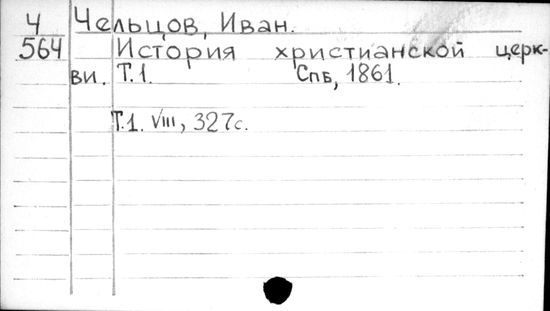 Ч Чельцов, Иван.
564 История христианской церк-
ви. Т.1. Спб, 1861.
Т.1. VIII, 327с.